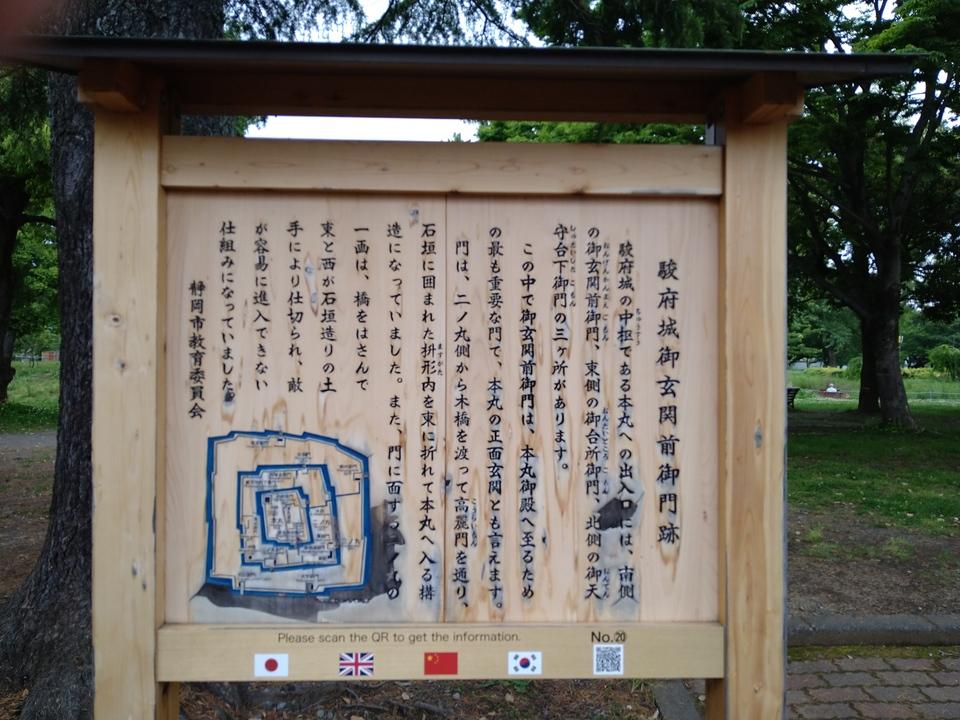 駿府城御玄関前御門跡
駿府城の中枢である本丸への出入口には、南側
の御玄関前御門、東側の御台所御門、北側の御天
守台下御門の三ヶ所があります。
この中で御玄関前御門は、本丸御殿へ至るため
の最も重要な門で、本丸の正面玄関とも言えます。
門は、二ノ丸側から木橋を渡って高麗門を通り、
石垣に囲まれた枡形内を東に折れて本丸へ入る構
造になっていました。また、門に面す
の
一画は、橋をはさんで
東と西が石垣造りの土
手により仕切られ、敵
が容易に進入できない
仕組みになっていました。
静岡市教育委員会
Please scan the QR to get the information.
No.⑳